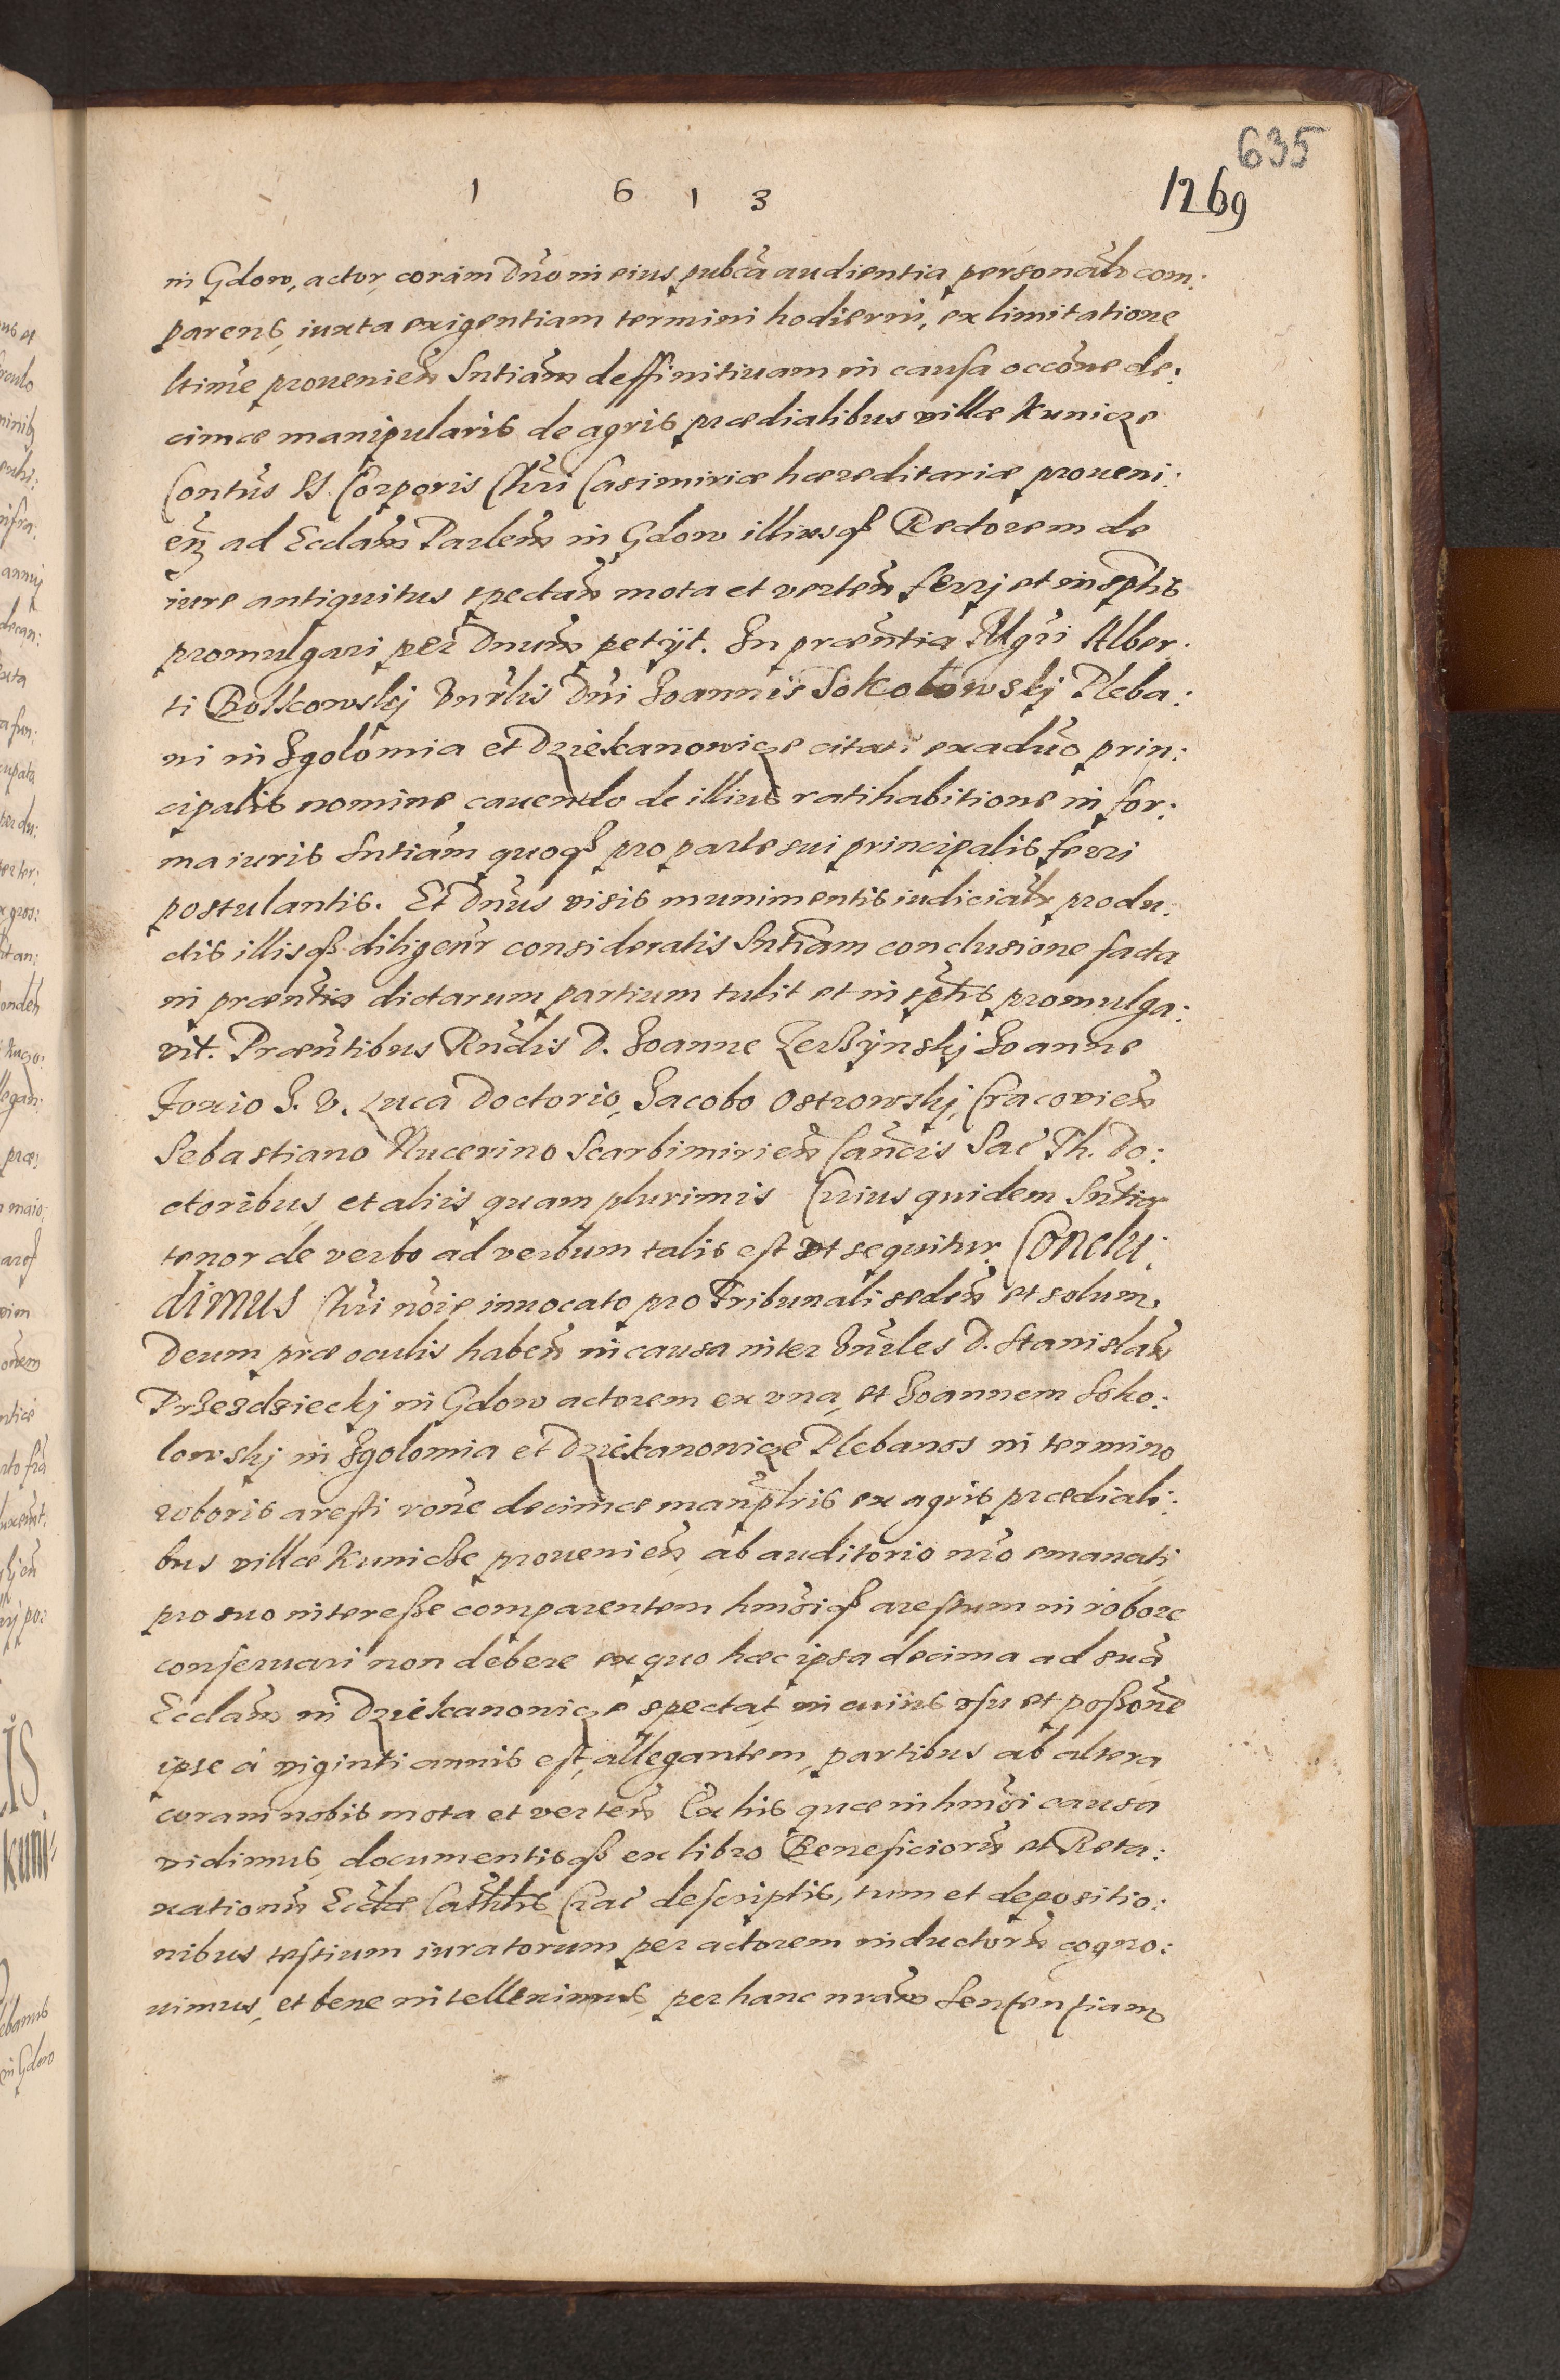 635
1 6 1 3
1269
in Gdow, actor, coram Dno in eius publca audientia personalr com:
parens, iuxta exigentiam termini hodierni, ex limitatione
ltime prouenien Sntiam deffinitiuam in causa occone de:
cimæ manipularis de agris prædialibus villæ Kunicze
Contus SS. Corporis Chri Casimiriæ hæreditariæ proueni:
en ad Ecclam Parlem in Gdow illiusq Rectorem de
iure antiquitus spectan mota et verten ferrj et in sptis
promulgari per Dnum petÿt. In præntia Mgri Alber:
ti Boskowskj Vnrlis Dni Joannis Sokołowskj Pleba:
ni in Igołomia et Dziekanowicze citati ex aduo prin:
cipalis nomine cauendo de illius ratihabitione in for:
ma iuris Sntiam quoq pro parte sui principalis ferri
postulantis. Et Dnus visis munimentis iudicialr produ:
ctis illisq diligenr consideratis Sntiam conclusione facta
in præntia dictarum partium tulit et in sptis promulga:
vit. Præntibus Rndis D. Joanne Zerzÿnskj Joanne
Foxio J. V. Luca Doctorio, Jacobo Ostrowskj, Cracovien
Sebastiano Nucerino Scarbimirien Cancis Sac Th. Do:
ctoribus, et aliis quam plurimis Cuius quidem Sntiæ
tenor de verbo ad verbum talis est vt sequitur. Conclu:
dimus Chri noie innocato pro Tribunali seden et solum
Deum præ oculis haben in causa inter Vnrles D. Stanislaum
Przezdzieckj in Gdow actorem ex vna, et Joannem Soko:
lowskj in Igolomia et Dziekanowicze Plebanos in termino
roboris aresti rone decimæ manplris ex agris prædiali:
bus villæ Kunicze prouenien, ab auditorio nro emanati,
pro suo interesse comparentem hmoiq arestum in robore
conseruari non debere ex quo hæc ipsa decima ad sua
Ecclam in Dziekanowicze spectat, in cuius vsu et possone
ipse a viginti annis est, allegantem, partibus ab altera
coram nobis mota et verten Ex his quæ in hmoi causa
vidimus, documentisq ex libro Beneficioru et Reta:
xationu Ecclæ Cathlis Crac descriptis, tum et depositio:
nibus testium iuratorum per actorem inductoru cogno:
uimus, et bene intelleximus, per hanc nram Sententiam